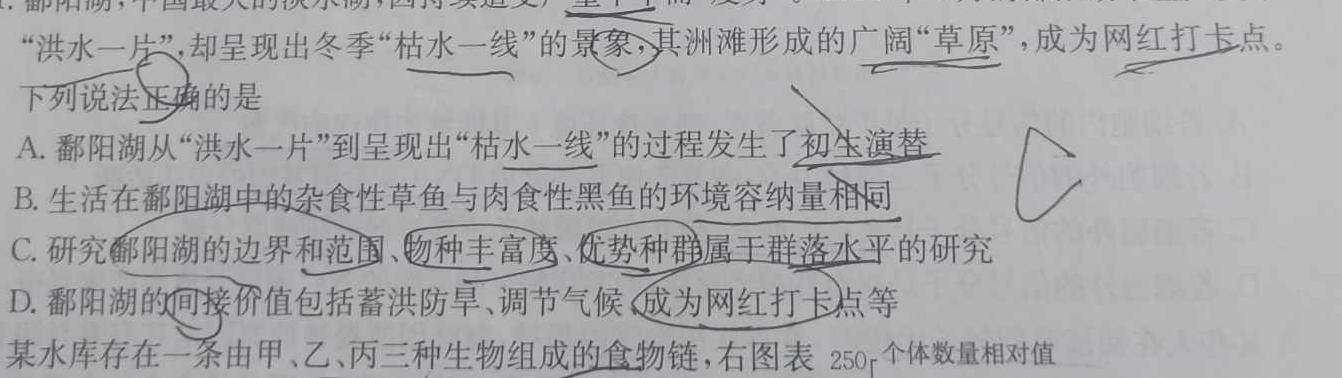 鄱阳湖,中国最大的淡水湖,因持续遭受
“洪水一片”,却呈现出冬季“枯水一线”的景象,其洲滩形成的广阔“草原”,成为网红打卡点。
下列说法正确的是
A. 鄱阳湖从“洪水一片”到呈现出“枯水一线”的过程发生了初生演替
B. 生活在鄱阳湖中的杂食性草鱼与肉食性黑鱼的环境容纳量相同
C. 研究鄱阳湖的边界和范围、物种丰富度、优势种群属于群落水平的研究
D. 鄱阳湖的间接价值包括蓄洪防旱、调节气候、成为网红打卡点等
某水库存在一条由甲、乙、丙三种生物组成的食物链,右图表 250 个体数量相对值